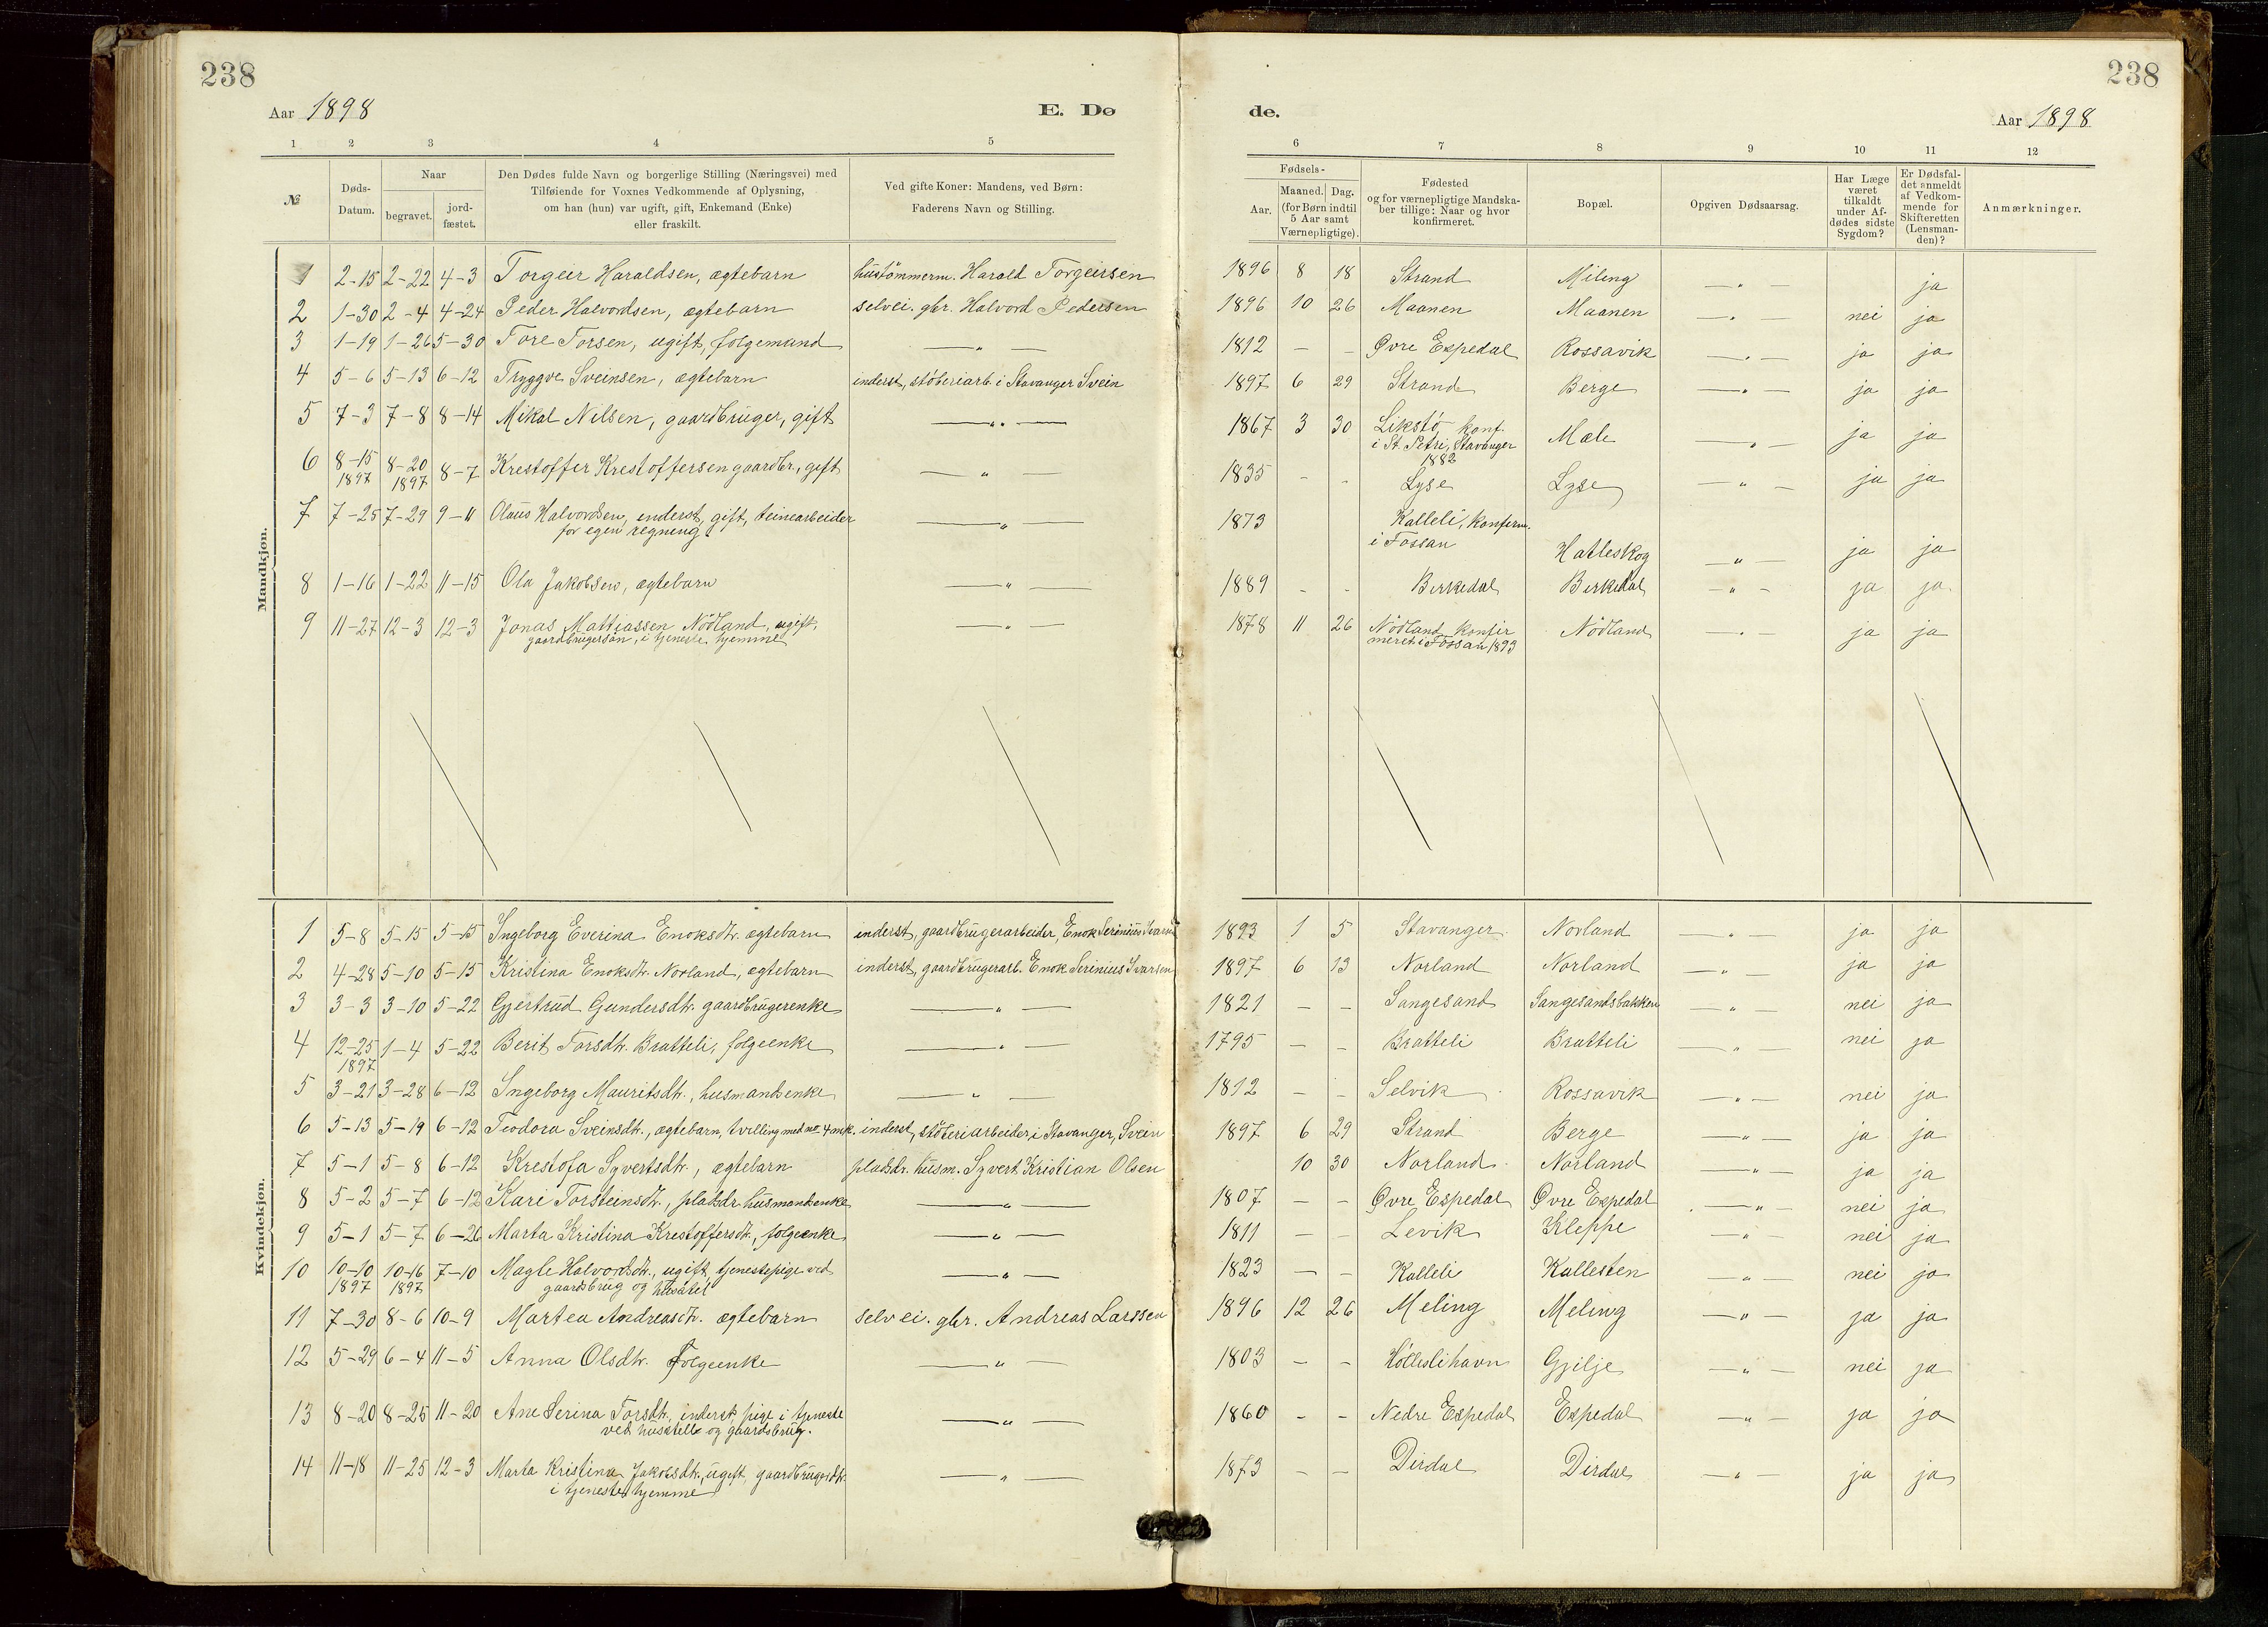 238
238
Aar 1898
E. Dø
de.
Aar 1898
1 2 3 4 5 6 7 8 9 10 11 12
№
Døds-
Datum.
Naar
begravet.
jord-
fæstet.
Den Dødes fulde Navn og borgerlige Stilling (Næringsvei) med
Tilføiende for Voxnes Vedkommende af Oplysning,
om han (hun) var ugift, gift, Enkemand (Enke)
eller fraskilt.
Ved gifte Koner: Mandens, ved Børn:
Faderens Navn og Stilling.
Fødsels-
Aar.
Maaned. Dag.
(for Børn indtil
5 Aar samt
Værnepligtige).
Fødested
og for værnepligtige Mandska-
ber tillige: Naar og hvor
konfirmeret.
Bopæl.
Opgiven Dødsaarsag.
Har Læge
været
tilkaldt
under Af-
dødes sidste
Sygdom?
Er Dødsfal-
det anmeldt
af Vedkom-
mende for
Skifteretten
(Lensman-
den)?
Anmærkninger.
Mandkjøn.
1 2-15 2-22 4-3 Torgeir Haraldsen, ægtebarn hustömmerm. Harald Torgeirsen 1896 8 18 Strand Meling — „ — ja
2 1-30 2-4 4-24 Peder Halvordsen, ægtebarn selvei. gbr. Halvord Pedersen 1896 10 26 Maanen Maanen — „ — nei ja
3 1-19 1-26 5-30 Tore Torsen, ugift, folgemand — „ — 1812 — — Øvre Espedal Rossavik — „ — ja ja
4 5-6 5-13 6-12 Tryggve Sveinsen, ægtebarn inderst, stöberiarb. i Stavanger Svein 1897 6 29 Strand Berge — „ — ja ja
5 7-3 7-8 8-14 Mikal Nilsen, gaardbruger, gift — „ — 1867 3 30 Likstö, konf. Mæle — „ — ja ja
i St. Petri, Stavanger
1882
6 8-15 8-20 8-7 Krestoffer Krestoffersen gaardbr., gift — „ — 1835 - - Lyse Lyse — „ — ja ja
1897 1897
7 7-25 7-29 9-11 Olaus Halvordsen, enderst, gift, teinearbeider — „ — 1873 Kalleli, konferm.
for egen regning i Fossan Hatleskog — „ — ja ja
8 1-16 1-22 11-15 Ola Jakobsen, ægtebarn — „ — 1889 - - Birkedal Birkedal — „ — ja ja
9 11-27 12-3 12-3 Jonas Mattiassen Nödland, ugift, — „ — 1878 11 26 Nödland konfir Nödland — „ — ja ja
gaardbrugersön, i tjeneste hjemme meret i Fossan 1893
Kvindekjøn.
1 5-8 5-15 5-15 Ingeborg Everina Enoksdtr. ægtebarn inderst, gaardbrugerarbeider, Enok Serinius Ivarsen 1893 1 5 Stavanger Norland — „ — ja ja
2 4-28 5-10 5-15 Kristina Enoksdtr. Norland, ægtebarn inderst, gaardbrugerarb. Enok Serinius Ivarsen 1897 6 13 Norland Norland — „ — ja ja
3 3-3 3-10 5-22 Gjertrud Gundersdtr. gaardbrugerenke — „ — 1821 — — Sangesand Sangesandsbakken — „ — nei ja
4 12-25 1-4 5-22 Berit Torsdtr. Bratteli, folgeenke — „ — 1795 — — Bratteli Bratteli — „ — nei ja
1897
5 3-21 3-28 6-12 Ingeborg Mauritsdtr., husmandsenke — „ — 1812 — — Selvik Rossavik — „ — nei ja
6 5-13 5-19 6-12 Teodora Sveinsdtr., ægtebarn, tvilling med no 4 mk. inderst, stöberiarbeider i Stavanger, Svein 1897 6 29 Strand Berge — „ — ja ja
7 5-1 5-8 6-12 Krestofa Syvertsdtr., ægtebarn pladsdr. husm. Syvert Kristian Olsen 10 30 Norland Norland — „ — ja ja
8 5-2 5-7 6-12 Kari Torsteinsdtr., pladsdr. husmandsenke — „ — 1807 — — Øvre Espedal Øvre Espedal — „ — nei ja
9 5-1 5-7 6-26 Marta Kristina Krestoffersdtr., folgeenke — „ — 1811 — — Levik Kleppe — „ — nei ja
10 10-10 10-16 7-10 Magle Halvordsdtr., ugift, tjenestepige ved — „ — 1823 — — Kalleli Kallesten — „ — nei ja
1897 1897 gaardsbrug og husstel
11 7-30 8-6 10-9 Martea Andreasdtr. ægtebarn selvei. gbr. Andreas Larssen 1896 12 26 Meling Meling — „ — ja ja
12 5-29 6-4 11-5 Anna Olsdtr. Folgeenke — „ — 1803 — — Hölleslihavn Gjilje — „ — nei ja
13 8-20 8-25 11-20 Ane Serina Torsdtr., inderst, pige i tjeneste — „ — 1860 - - Nedre Espedal Espedal — „ — ja ja
ved husstell og gaardsbrug.
14 11-18 11-25 12-3 Marta Kristina Jakobsdtr., ugift, gaardbrugerdtr. — „ — 1873 — — Dirdal Dirdal — „ — ja ja
i tjeneste hjemme